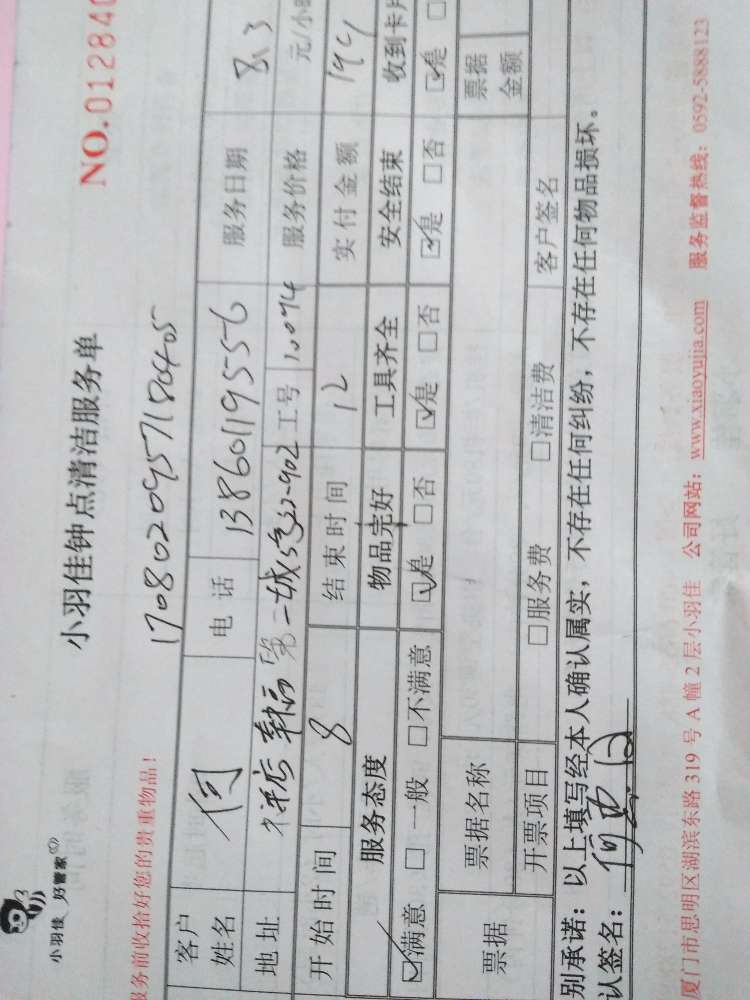 小羽佳 好管家
小羽佳钟点清洁服务单
NO.012840
务前收拾好您的贵重物品！
1708020957180405
客户姓名 何 电话 13860119556 服务日期 8.3
地址 第二城 32-902 工号 10074 服务价格 元/小时
开始时间 8 结束时间 12 实付金额
服务态度 物品完好 工具齐全 安全结束 收到卡片
☑满意 □一般 □不满意 ☑是 □否 ☑是 □否 ☑是 □否 ☑是 □
票据 票据名称 票据金额
开票项目 □服务费 □清洁费 客户签名
别承诺：以上填写经本人确认属实，不存在任何纠纷，不存在任何物品损坏。
认签名：
厦门市思明区湖滨东路 319 号 A 幢 2 层小羽佳 公司网站：www.xiaoyujia.com 服务监督热线：0592-5888123